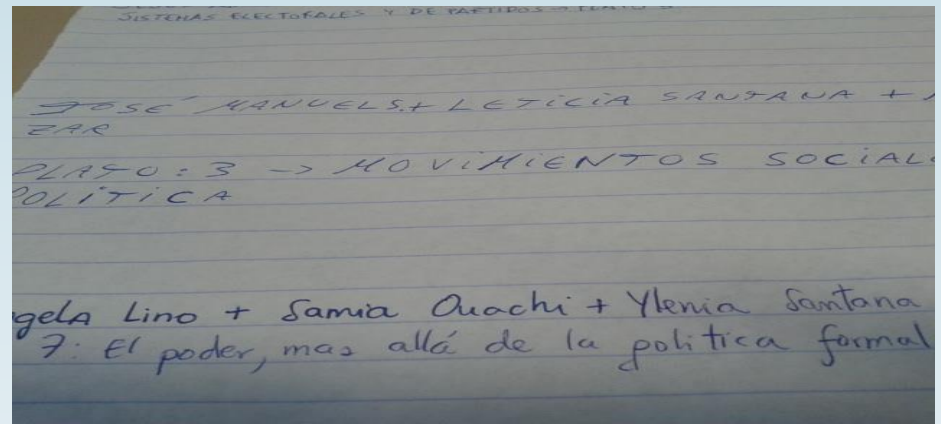 SISTEMAS ELECTORALES Y DE PARTIDOS →
JOSÉ MANUEL S. + LETICIA SANTANA +
ZAR
PLATO: 3 → MOVIMIENTOS SOCIAL
POLÍTICA
gela Lino + Samia Ouachi + Ylenia Santana
7: El poder, mas allá de la politica formal